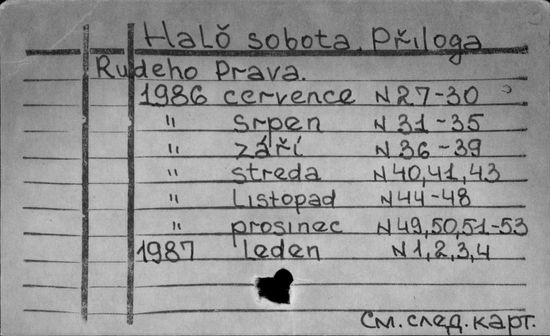 Halŏ sobota. Přiloga
Rudeho Prava.
1986 cervence N27-30
" Srpen N31-35
" září N36-39
" streda N40,41,43
" Listopad N44-48
" prosinec N49,50,51-53
1987 leden N1,2,3,4
См.след.карт.